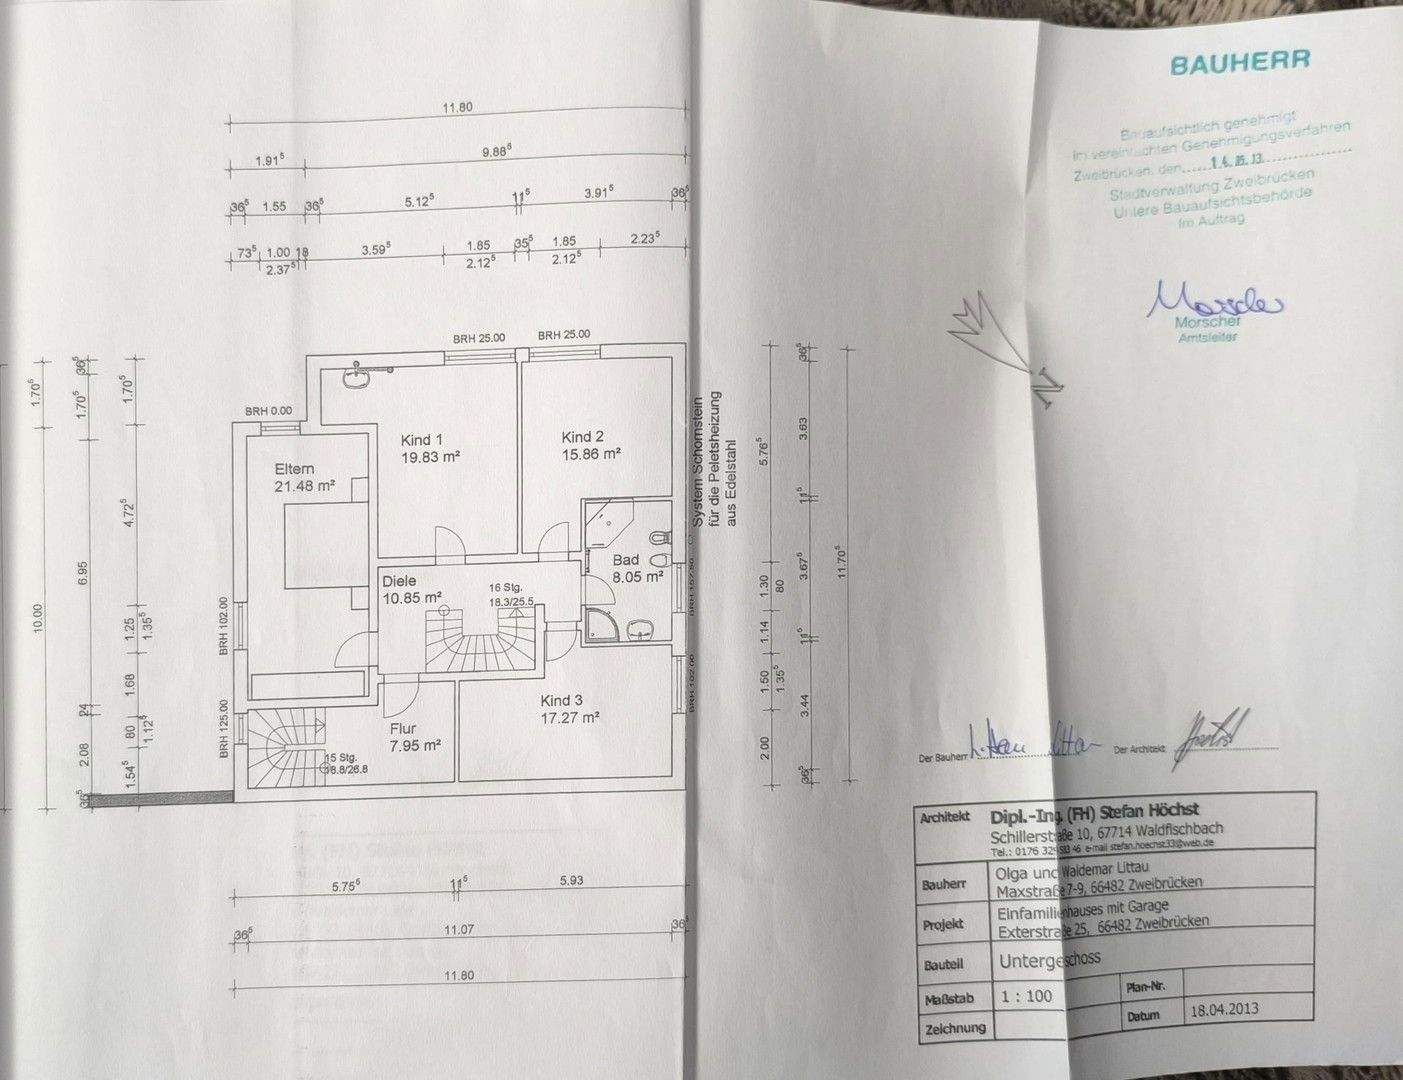 BAUHERR
Bauaufsichtlich genehmigt
im vereinfachten Genehmigungsverfahren
Zweibrücken, den
Stadtverwaltung Zweibrücken
Untere Bauaufsichtsbehörde
Im Auftrag
Morscher
Morscher
Amtsleiter
N
11.80
1.91⁵ 9.88⁵
36⁵ 1.55 36⁵ 5.12⁵ 11⁵ 3.91⁵ 36⁵
73⁵ 1.00 18 3.59⁵ 1.85 35⁵ 1.85 2.23⁵
2.37⁵ 2.12⁵ 2.12⁵
BRH 25.00 BRH 25.00
BRH 0.00
Kind 1
19.83 m²
Kind 2
15.86 m²
Eltern
21.48 m²
Bad
8.05 m²
Diele
10.85 m²
16 Stg.
18.3/25.5
Kind 3
17.27 m²
Flur
7.95 m²
15 Stg.
BRH 102.00
BRH 125.00
BRH 102.00
System Schornstein
für die Peletsheizung
aus Edelstahl
1.70⁵
10.00
36⁵
1.70⁵
6.95
24
2.08
36⁵
1.70⁵
4.72⁵
1.25
1.35⁵
1.68
80
1.12⁵
1.54⁵
5.76⁵
1.30
80
1.14
1.50
1.35⁵
2.00
36⁵
3.63
11⁵
3.67⁵
11⁵
3.44
36⁵
11.70⁵
5.75⁵ 11⁵ 5.93
36⁵ 11.07 36⁵
11.80
Der Bauherr
Der Architekt
Architekt Dipl.-Ing. (FH) Stefan Höchst
Schillerstraße 10, 67714 Waldfischbach
Bauherr Olga und Waldemar Littau
Maxstraße 7-9, 66482 Zweibrücken
Projekt Einfamilienhauses mit Garage
Exterstraße 25, 66482 Zweibrücken
Bauteil Untergeschoss
Maßstab 1 : 100 Plan-Nr.
Zeichnung Datum 18.04.2013